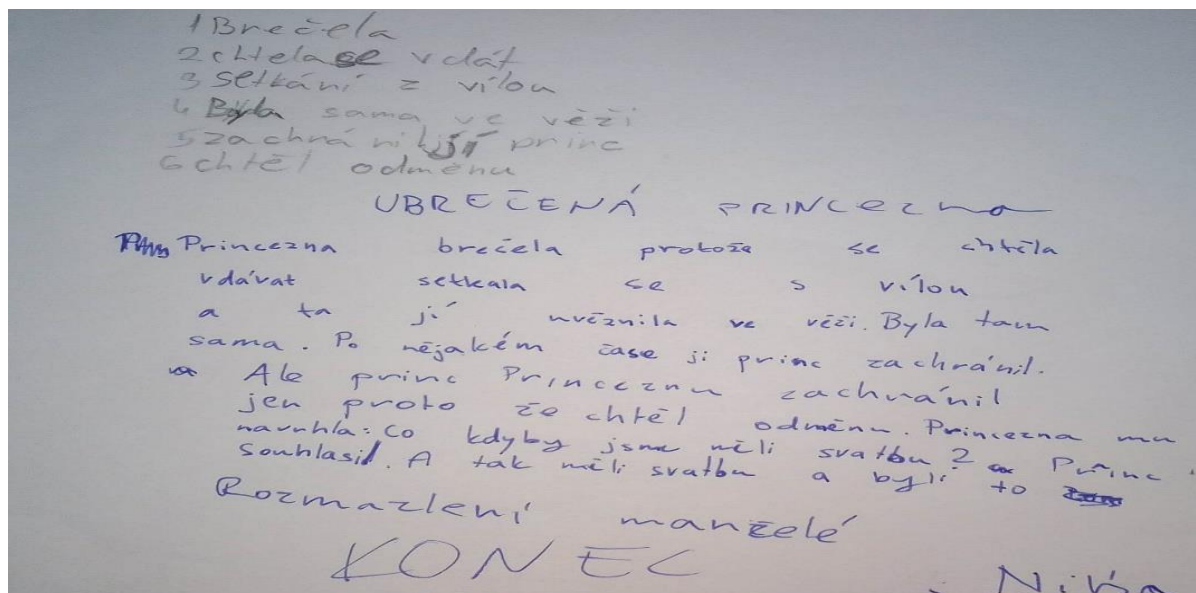 1 Brečela
2 chtela se vdát
3 setkání z vílou
4 Byla sama ve věži
5 zachránil jí princ
6 chtěl odměnu
UBREČENÁ PRINCEZNA
Princezna brečela protože se chtěla
vdávat setkala se s vílou
a ta jí uvěznila ve věži. Byla tam
sama. Po nějakém čase ji princ zachránil.
Ale princ Princeznu zachránil
jen proto že chtěl odměnu. Princezna mu
navrhla: Co kdyby jsme měli svatbu? Princ
souhlasil. A tak měli svatbu a byli to
Rozmazlení manželé
KONEC